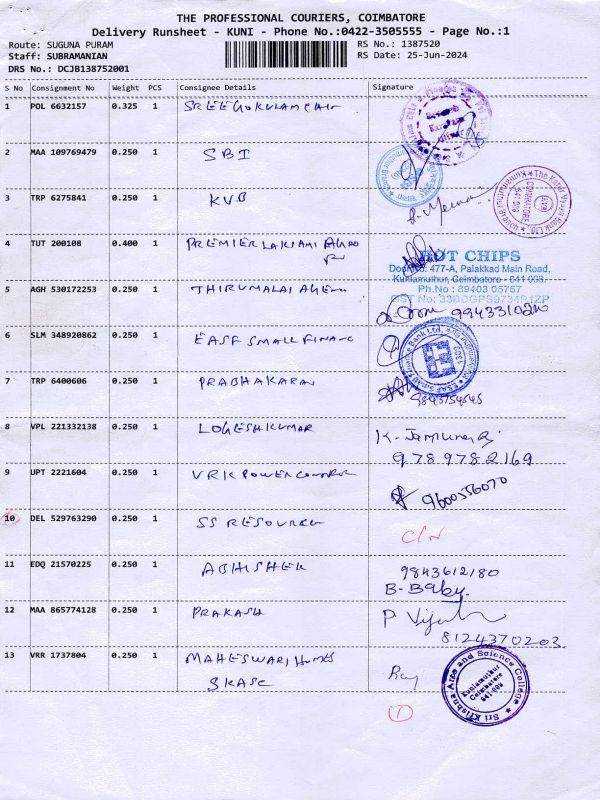 THE PROFESSIONAL COURIERS, COIMBATORE
Delivery Runsheet - KUNI - Phone No.:0422-3505555 - Page No.:1
Route: SUGUNA PURAM
Staff: SUBRAMANIAN
DRS No.: DCJB138752001
RS No.: 1387520
RS Date: 25-Jun-2024
S No Consignment No Weight PCS Consignee Details Signature
1 POL 6632157 0.325 1 SREE GOKULAM CHIT
2 MAA 109769479 0.250 1 SBI
3 TRP 6275841 0.250 1 KVB
The Karur Vysya Bank Ltd.
COIMBATORE
641 008
4 TUT 200108 0.400 1 PREMIER LAKSHMI AGRO
HOT CHIPS
Door No: 477-A, Palakkad Main Road,
Kuniamuthur, Coimbatore - 641 008.
Ph.No : 89403 05757
5 AGH 530172253 0.250 1 THIRUMALAI AGEN
9943310210
6 SLM 348920862 0.250 1 EASF SMALL FINANC
7 TRP 6400606 0.250 1 PRABHAKARAN
9843754545
8 VPL 221332138 0.250 1 LOGESHKUMAR
9789782169
9 UPT 2221604 0.250 1 VRK POWER CONTROL
9600556070
10 DEL 529763290 0.250 1 SS RESOURCE
C/N
11 EDQ 21570225 0.250 1 ABHISHEK 9843612180
B-Baby.
12 MAA 865774128 0.250 1 PRAKASH
8124370203
13 VRR 1737804 0.250 1 MAHESWARI HOMES
SKASC
Sri Krishna Arts and Science College
Kuniamuthur
Coimbatore
641-008
1